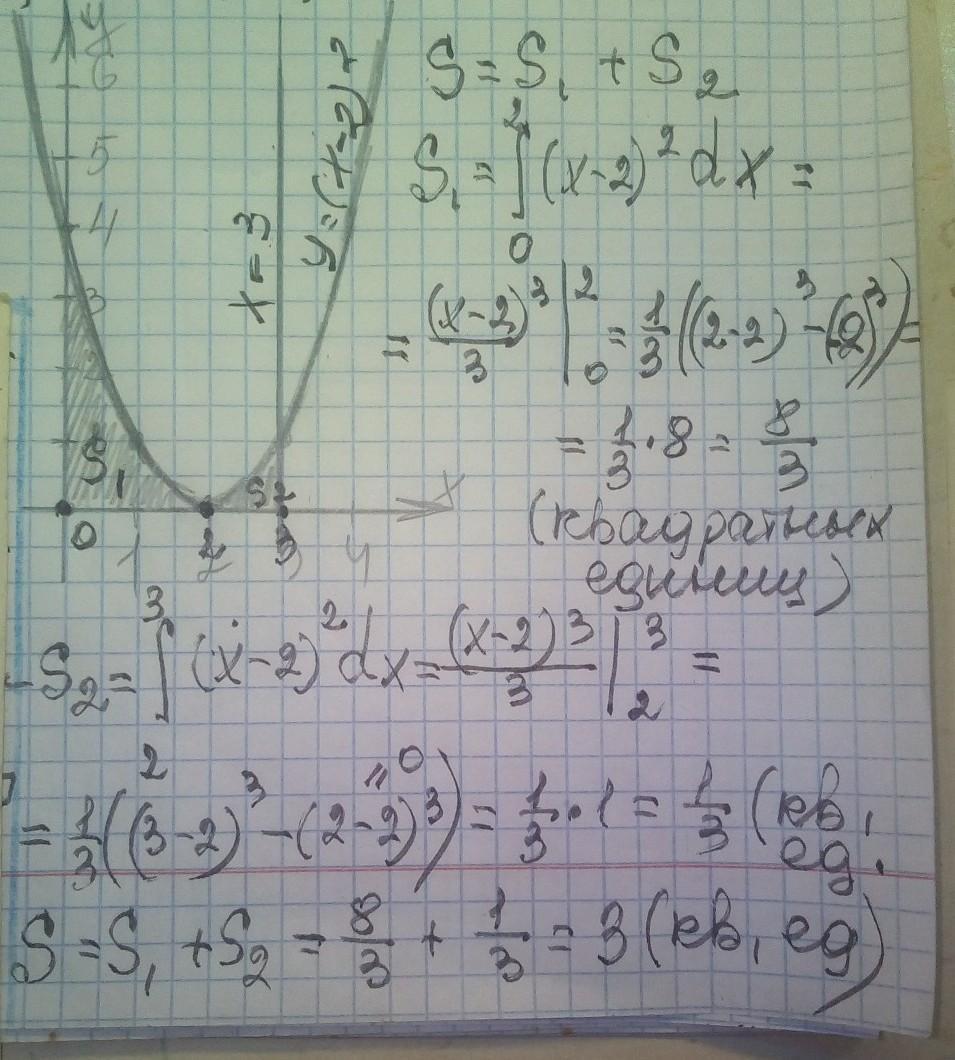 y
6
5
4
3
2
1
0 1 2 3 4
x
S₁
S₂
x=3
y=(x-2)²
S=S₁ + S₂
S₁ = ∫₀² (x-2)² dx =
= (x-2)³/3 |₀² = 1/3((2-2)³-(-2)³)=
= 1/3 · 8 = 8/3
(квадратных
единиц)
S₂ = ∫₂³ (x-2)² dx = (x-2)³/3 |₂³ =
= 1/3((3-2)³-(2-2)³) = 1/3 · 1 = 1/3 (кв,
"0
ед.
S = S₁ + S₂ = 8/3 + 1/3 = 3 (кв, ед)